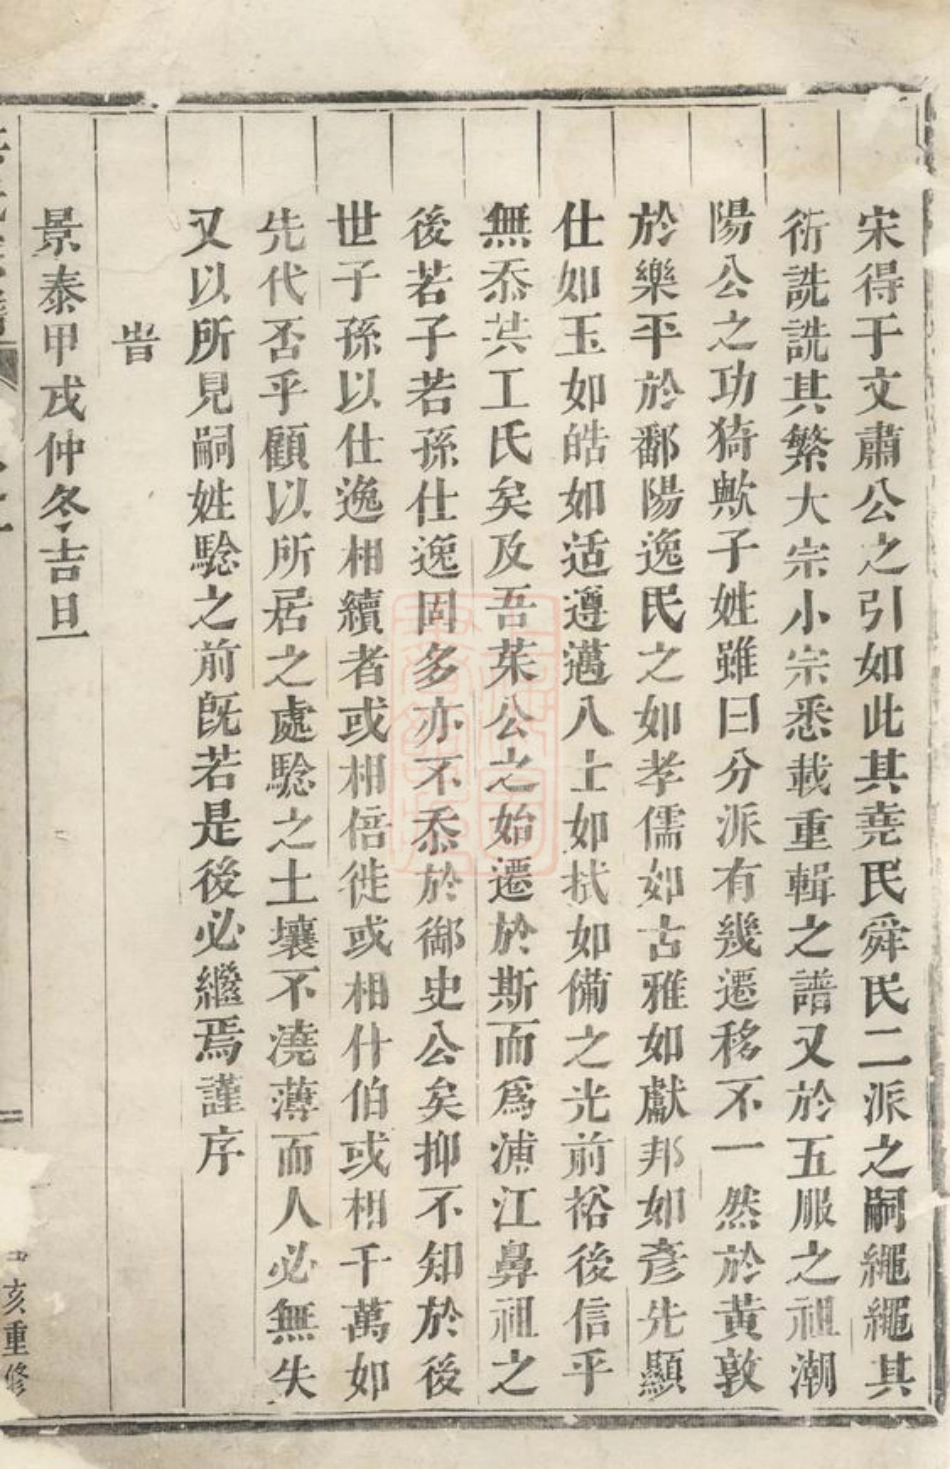 宋得于文肅公之引如此其堯民舜民二派之嗣繩繩其
衍詵詵其繁大宗小宗悉載重輯之譜又於五服之祖潮
陽公之功猗歟子姓雖曰分派有幾遷移不一然於黃敦
於樂平於鄱陽逸民之如孝儒如古雅如獻邦如彥先顯
仕如玉如皓如适遵邁八士如拭如備之光前裕後信乎
無忝共工氏矣及吾茱公之始遷於斯而爲浦江鼻祖之
後若子若孫仕逸固多亦不忝於御史公矣抑不知於後
世子孫以仕逸相續者或相倍徙或相什伯或相千萬如
先代否乎顧以所居之處騐之土壤不澆薄而人必無失
又以所見嗣姓騐之前旣若是後必繼焉謹序
旹
景泰甲戌仲冬吉旦
亥重修